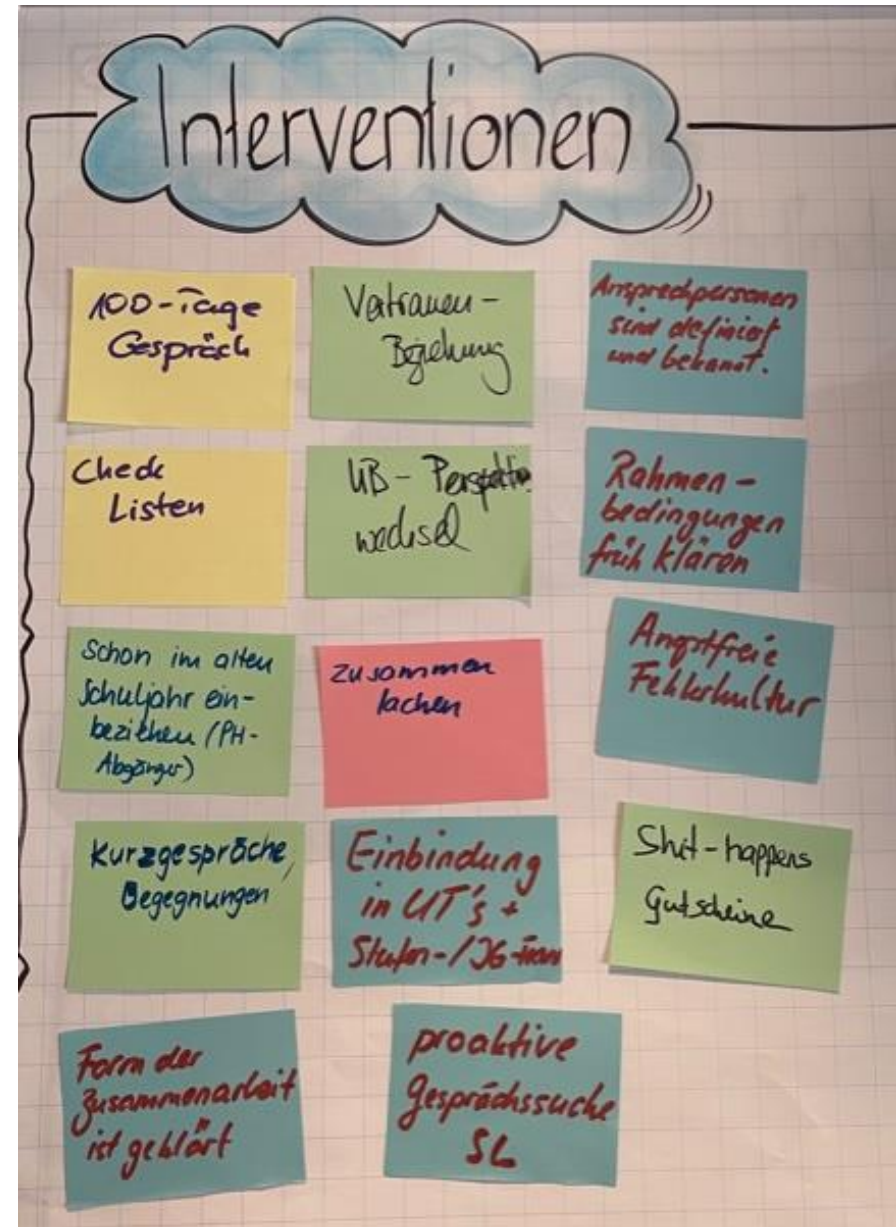 Interventionen
100-Tage
Gespräch
Vertrauen-
Beziehung
Ansprechpersonen
sind definiert
und bekannt.
Check
Listen
UB - Perspektiv
wechsel
Rahmen-
bedingungen
früh klären
Schon im alten
Schuljahr ein-
beziehen (PH-
Abgänger)
Zusammen
lachen
Angstfreie
Fehlerkultur
Kurzgespräche,
Begegnungen
Einbindung
in UT's +
Stufen-/JG-Team
Shit-happens
Gutscheine
Form der
Zusammenarbeit
ist geklärt
proaktive
Gesprächssuche
SL